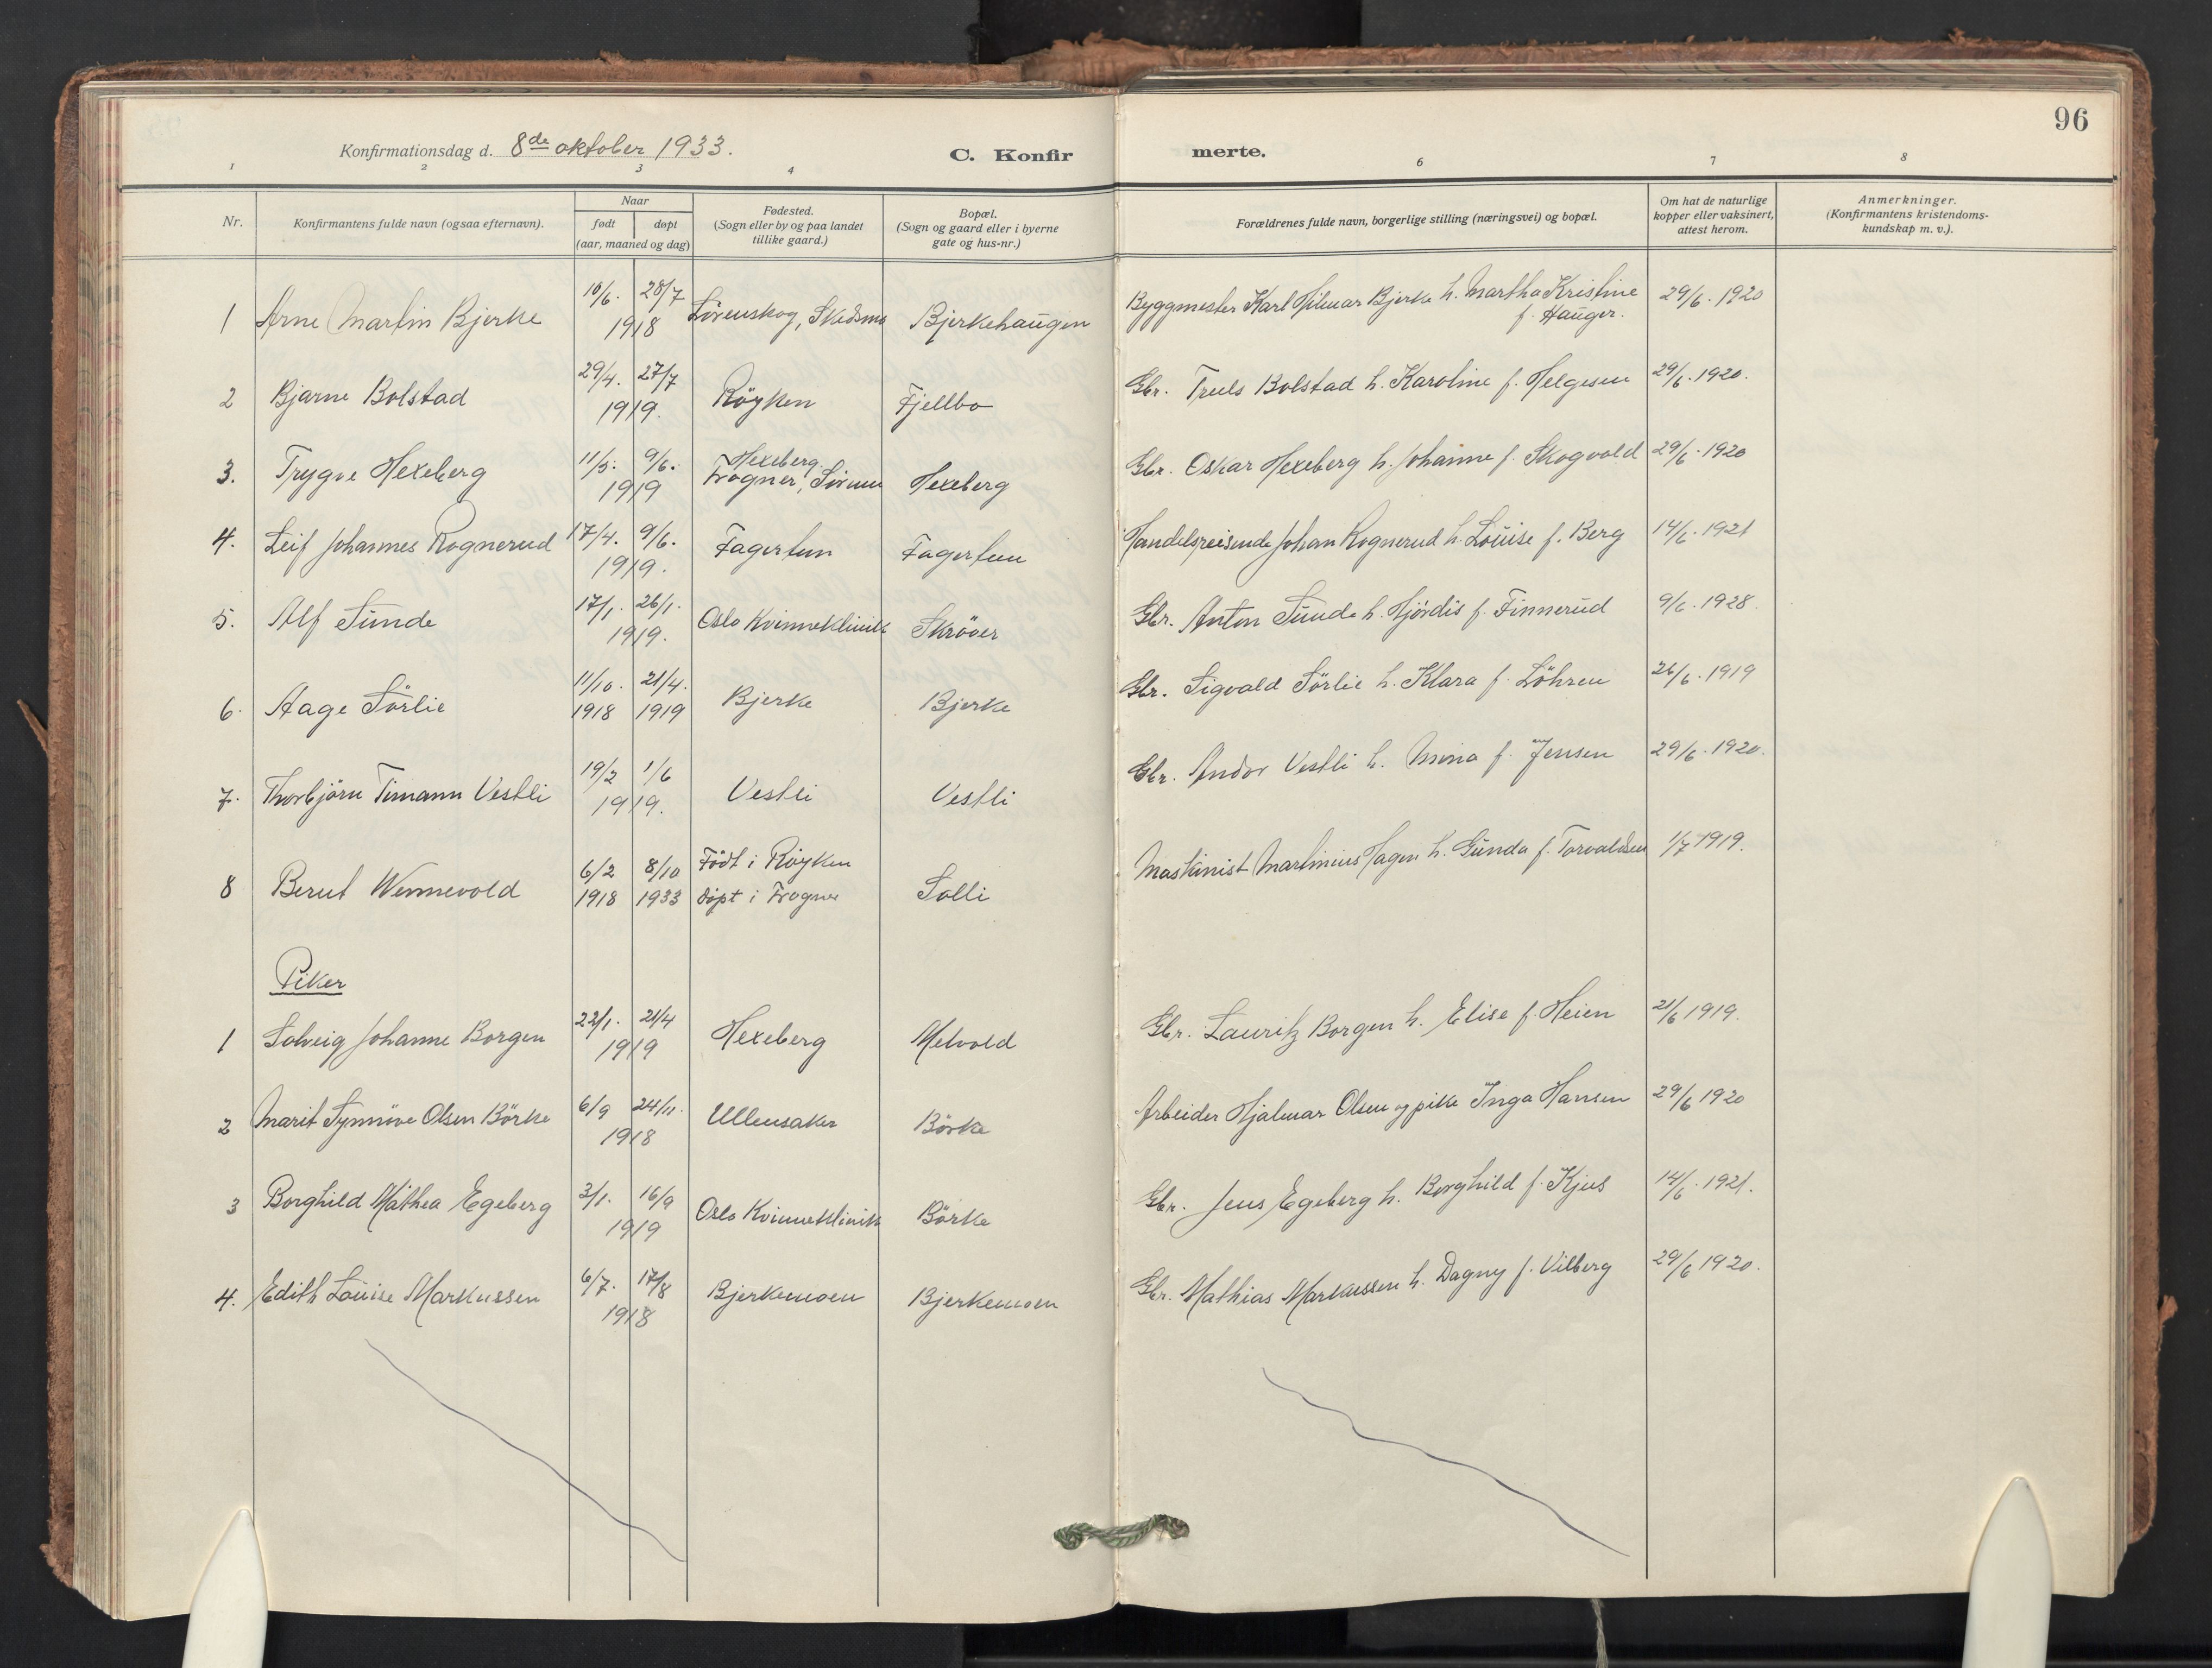 96
Konfirmationsdag d. 8de oktober 1933.
C. Konfir merte.
1 2 3 4 6 7 8
Nr.
Konfirmantens fulde navn (ogsaa efternavn).
Naar
født døpt
(aar, maaned og dag)
Fødested.
(Sogn eller by og paa landet
tillike gaard.)
Bopæl.
(Sogn og gaard eller i byerne
gate og hus-nr.)
Forældrenes fulde navn, borgerlige stilling (næringsvei) og bopæl.
Om hat de naturlige
kopper eller vaksinert,
attest herom.
Anmerkninger.
(Konfirmantens kristendoms-
kundskap m. v.).
1 Arne Martin Bjerke 10/6. 28/7 1918 Lörenskog, Skedsmo Bjerkehaugen Byggmester Karl Hilmar Bjerke h. Martha Kristine f. Hauger. 29/6. 1920
2 Bjarne Bolstad 29/4. 27/7 1919. Röyken Fjellbo Gbr. Truls Bolstad h. Karoline f. Helgesen 29/6. 1920.
3. Trygve Hexeberg 11/5. 9/6. 1919 Hexeberg Frogner, Sörum Hexeberg Gbr. Oskar Hexeberg h. Johanne f. Skogvold 29/6. 1920
4. Leif Johannes Rognerud 17/4. 9/6. 1919. Fagertun Fagertun Handelsreisende Johan Rognerud h. Louise f. Berg 14/6. 1921
5. Alf Sunde 17/1. 26/1. 1919. Oslo Kvinneklinikk Skröver Gbr. Anton Sunde h. Hjördis f. Finnerud 9/6. 1928.
6. Aage Sörlie 11/10. 1918 21/4. 1919 Bjerke Bjerke Gbr. Sigvald Sörlie h. Klara f. Löhren 26/6. 1919
7. Thorbjörn Timann Vestli 19/2 1/6 1919. Vestli Vestli Gbr. Andor Vestli h. Mina f. Jensen 29/6. 1920.
8 Berut Wennevold 6/2 1918 8/10 1933 Födt i Röyken döpt i Frogner Solli Maskinist Martinius Hagen h. Gunda f. Torvaldsen 1/7 1919.
Piker
1 Solveig Johanne Borgen 22/1. 21/4 1919 Hexeberg Melvold Gbr. Lauritz Borgen h. Elise f. Heien 21/6 1919.
2 Marit Synnöve Olsen Börke 6/9 24/11. 1918 Ullensaker Börke Arbeider Hjalmar Olsen og pike Inga Hansen 29/6 1920
3 Borghild Mathea Egeberg 3/1. 16/9 1919 Oslo Kvinneklinikk Börke Gbr. Jens Egeberg h. Borghild f. Kjus 14/6. 1921.
4. Edith Louise Markussen 6/7. 17/8 1918 Bjerkemoen Bjerkemoen Gbr. Mathias Markussen h. Dagny f. Vilberg 29/6 1920.